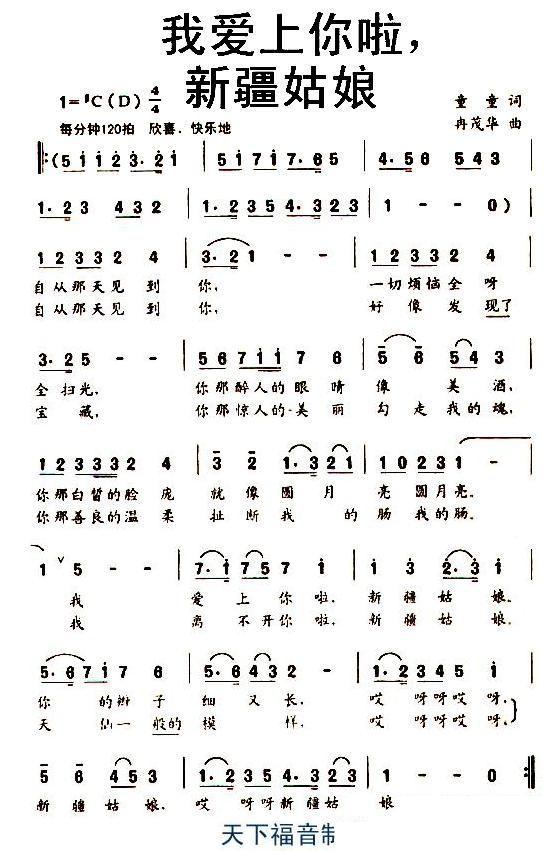 我爱上你啦，
新疆姑娘
1=♯C(D) 4/4
童童 词
每分钟120拍 欣喜、快乐地
冉茂华 曲
‖:(5 1 1 2 3·2 1 | 5 1 7 1 7·6 5 |
1·2 3 4 3 2 | 1·2 3 5 4·3 2 3 | 1 - - 0)
1 2 3 3 2 4 | 3·2 1 - - | 1 2 3 3 2 4 |
自从那天见到 你， 一切烦恼全呀
自从那天见到 你， 好像发现了
3·2 5 - - | 5 6 7 1 1 7 6 | 5 6 5 4 |
全扫光， 你那醉人的眼睛像 美酒，
宝藏， 你那惊人的美丽勾走我的魂，
1 2 3 3 3 2 4 | 3 2 1·3 2 1 | 1 0 2 3 1 - - |
你那白皙的脸庞 就像圆月 亮圆月亮。
你那善良的温柔 扯断我 的肠我的肠。
1 ∨ 5 - - | 7·1 7 5 7 1 | 1 3 2·3 1 |
我 爱上你啦，新疆姑娘。
我 离不开你啦，新疆姑娘。
5·6 7 1 7 6 | 5·5 4 2 3 | 1·2 3 4 5 1 |
你的辫子细又长，哎呀呀哎呀，
天仙一般的模样，哎呀呀哎呀，
5 6 4 5 3 | 1·2 3 4 2 3 | 1 - - 0 :‖
新疆姑娘，哎呀呀新疆姑 娘
天下福音制